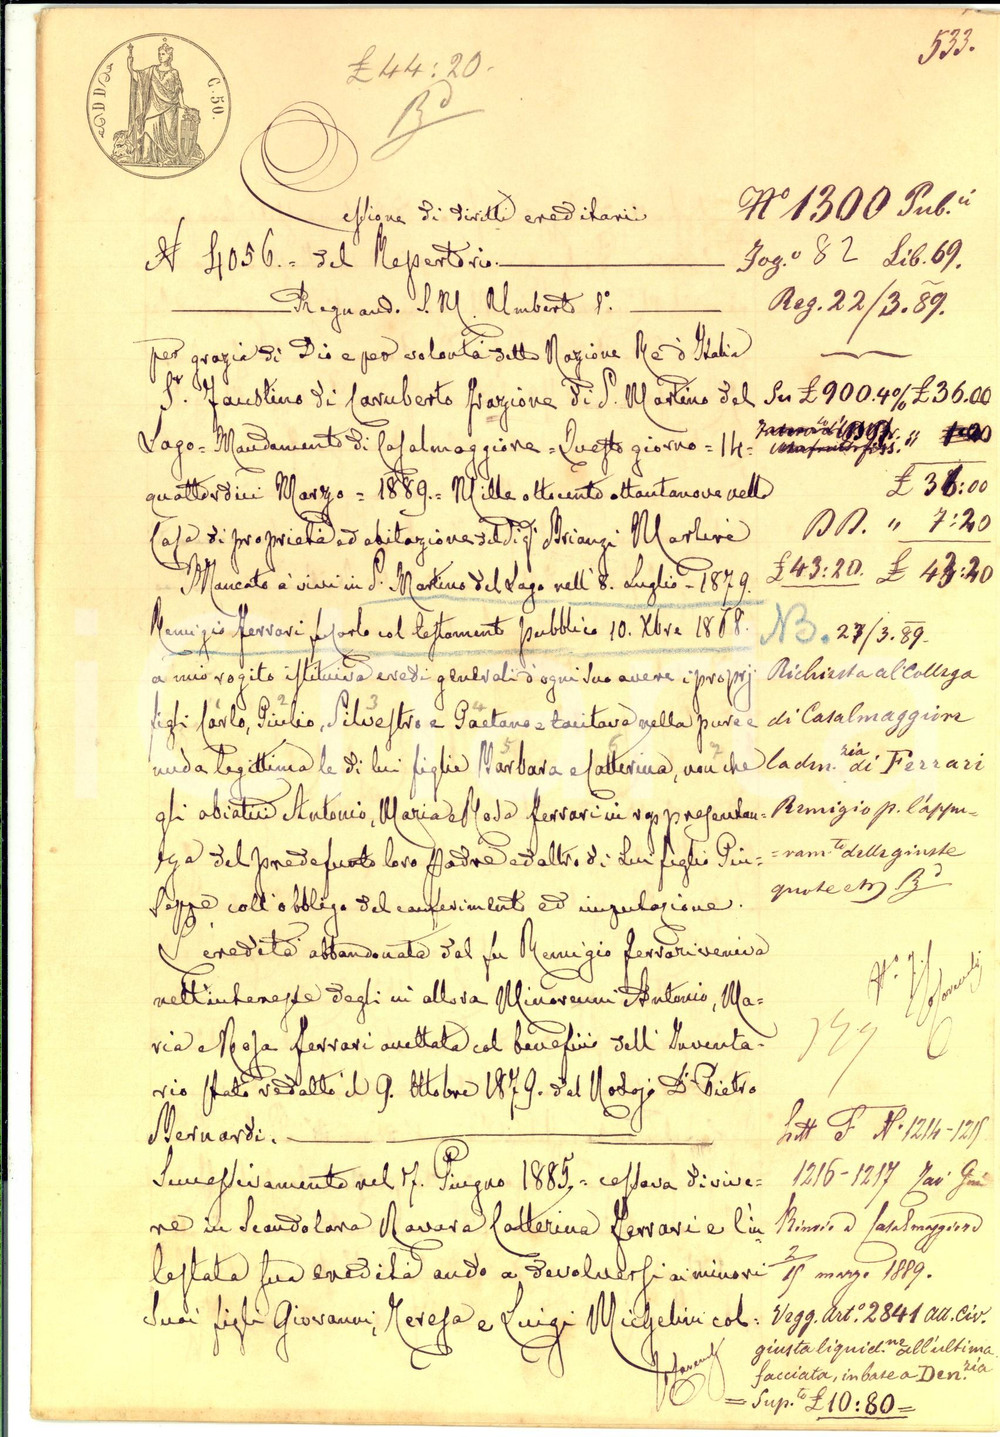 533.
C. 50.
£ 44:20.
Cessione di diritti ereditarii
N 4056.= del Repertorio.
Regnando S. M. Umberto I°.
per grazia di Dio e per volontà della Nazione Re d'Italia
Sr. Faustino di Carruberto frazione di S. Martino del
Lago = Mandamento di Casalmaggiore = Questo giorno = 14 =
quattordici Marzo = 1889. = Mille ottocento ottantanove nella
Casa di proprietà ed abitazione del Sigr Brianzi
Mancato a' vivi in S. Martino del Lago nell' 8. Luglio - 1879.
Remigio Ferrari fu Carlo col testamento pubblico 10. Xbre 1868.
a mio rogito istituiva eredi generali d'ogni suo avere i proprj
figli Carlo, Giulio, Silvestro e Gaetano = tacitava nella pura e
2 3 4
nuda legittima le di lui figlie Barbara e Catterina, non che
5 6 7
gli abiatici Antonio, Maria e Rosa Ferrari in rappresentan=
za del predefunto loro Padre ed altro di lui figlio Giu=
seppe coll'obbligo del conferimento ed imputazione.
L'eredità abbandonata dal fu Remigio Ferrari veniva
nell'interesse degli in allora Minorenni Antonio, Ma=
ria e Rosa Ferrari accettata col beneficio dell'Inventa=
rio stato redatto il 9. Ottobre 1879. dal Notajo Dr Pietro
Bernardi.
Successivamente nel 17. Giugno 1885,= cessava di vive=
re in Scandolara Ravara Catterina Ferrari e l'in=
testata sua eredità andò a devolversi ai minori
suoi figli Giovanni, Teresa e Luigi Michelini col=
N° 1300 Pub.ci
Fog.° 82 Lib. 69.
Reg. 22/3.89.
Su £ 900. 4% £ 36.00
£ 36:00
" 7:20
£ 43:20. £ 43:20
NB. 27/3.89.
Richiesta al Collega
di Casalmaggiore
la den.zia di Ferrari
Remigio p. l'appu=
=ram.to delle giuste
quote
Lett F N° 1214-1215
1216-1217
Rinvio a Casalmaggiore
15 marzo 1889.
Vegg. Art.° 2841 att. Civ.
giusta liquid.ne all'ultima
facciata, in base a Den.zia
= Sup.to £ 10:80 =